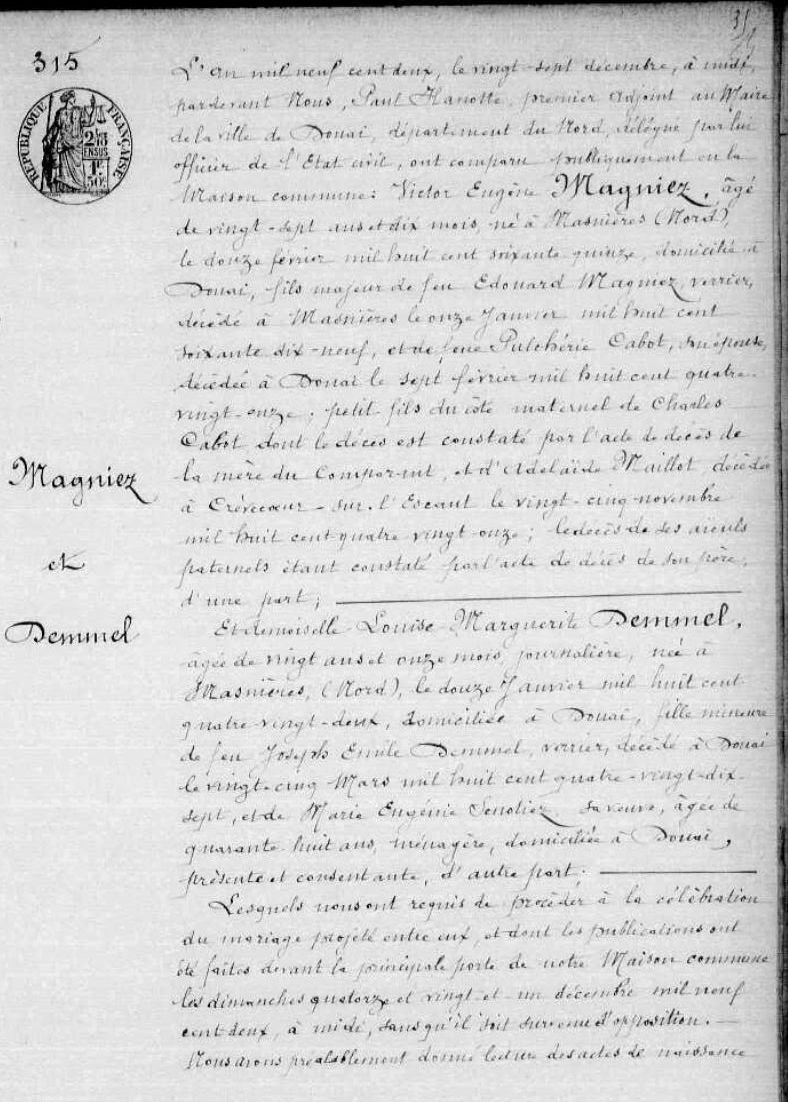 315
RÉPUBLIQUE FRANÇAISE
L'an mil neuf cent deux, le vingt-sept décembre, à midi,
pardevant Nous, Paul Hanotte, premier Adjoint au Maire
de la ville de Douai, département du Nord, délégué par lui
officier de l'Etat civil, ont comparu publiquement en la
Maison commune: Victor Eugène Magniez, âgé
de vingt-sept ans et dix mois, né à Masnières (Nord),
le douze février mil huit cent soixante quinze, domicilié à
Douai, fils majeur de feu Edouard Magniez, verrier,
décédé à Masnières le onze Janvier mil huit cent
soixante dix-neuf, et de feue Pulchérie Cabot, son épouse,
décédée à Douai le sept février mil huit cent quatre-
vingt-onze; petit-fils du côté maternel de Charles
Cabot dont le décès est constaté par l'acte de décès de
la mère du Comparant, et d'Adelaïde Maillot, décédée
à Crévecoeur-sur-l'Escaut le vingt-cinq novembre
mil huit cent quatre vingt onze; le décès de ses aieuls
paternels étant constaté par l'acte de décès de son père;
d'une part;
Magniez
et
Demmel
Et demoiselle Louise Marguerite Demmel,
âgée de vingt ans et onze mois, journalière, née à
Masnières, (Nord), le douze Janvier mil huit cent
quatre-vingt-deux, domiciliée à Douai, fille mineure
de feu Joseph Emile Demmel, verrier, décédé à Douai
le vingt-cinq Mars mil huit cent quatre-vingt-dix-
sept, et de Marie Eugénie sa veuve, âgée de
quarante huit ans, ménagère, domiciliée à Douai,
présente et consentante, d'autre part.
Lesquels nous ont requis de procéder à la célébration
du mariage projeté entre eux, et dont les publications ont
été faites devant la principale porte de notre Maison commune
les dimanches quatorze et vingt-et-un décembre mil neuf
cent deux, à midi, sans qu'il soit survenu d'opposition.
Nous avons préalablement donné lecture des actes de naissance